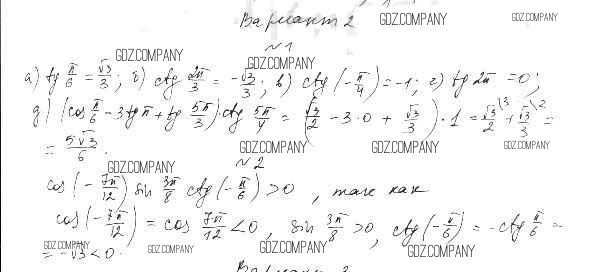 Вариант 2 GDZ.COMPANY GDZ.COMPANY
№1
GDZ.COMPANY GDZ.COMPANY
а) tg π/6 = √3/3; б) ctg 2π/3 = -√3/3; в) ctg(-π/4) = -1; г) tg 2π = 0;
д) (cos π/6 - 3tg π + tg 5π/3)·ctg 5π/4 = (√3/2 - 3·0 + √3/3)·1 = √3/2 \3 + √3/3 \2 =
= 5√3/6. GDZ.COMPANY GDZ.COMPANY GDZ.COMPANY
GDZ.COMPANY №2
cos(-7π/12) sin 3π/8 ctg(-π/6) > 0, так как
cos(-7π/12) = cos 7π/12 < 0, sin 3π/8 > 0, ctg(-π/6) = -ctg π/6 =
GDZ.COMPANY GDZ.COMPANY GDZ.COMPANY GDZ.COMPANY
= -√3 < 0.